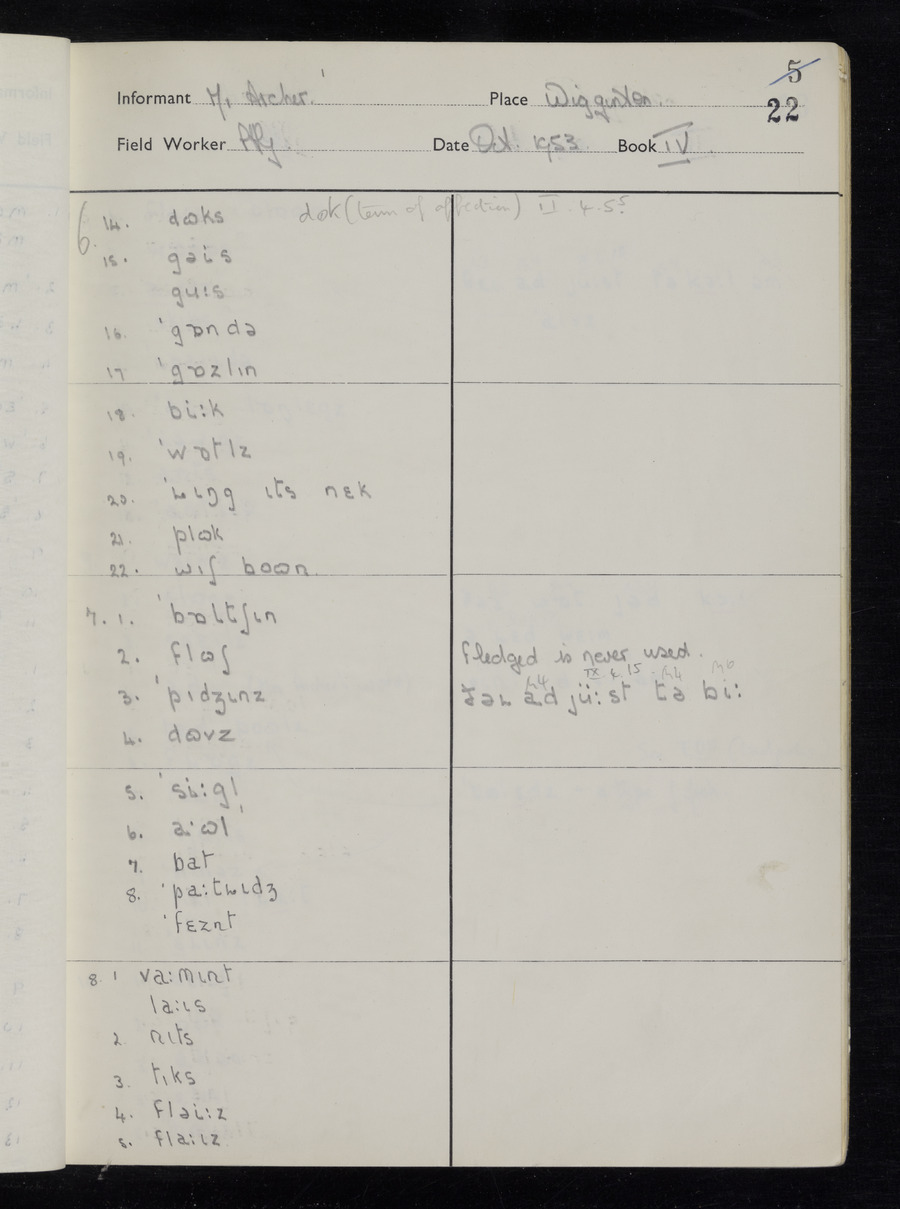 5
22
Informant Mr Archer. Place Wigginton.
Field Worker Date Oct. 1953 Book IV.
6. 14. dɷks dɷk (term of affection) II. 4. 55
15. gəis
guːs
16. ˈgɒndə
17 ˈgɒzlɪn
18. biːk
19. ˈwɒtlz
20. ˈɹɪŋg ɪts nɛk
21. plɷk
22. wɪʃ boɷn
7. 1. ˈbɒltʃɪn
2. flɷʃ fledged is never used.
IX 4. 15
3. ˈpɪdʒɪnz ad jüːst tə biː
4. dɷvz
5. ˈsiːgl̩
6. aˑɷl
7. bat
8. ˈpaːtɹɪdʒ
ˈfɛznt
8. 1 vaːmɪnt
laːɪs
2. nɪts
3. tɪks
4. fləiːz
5. flaːɪz